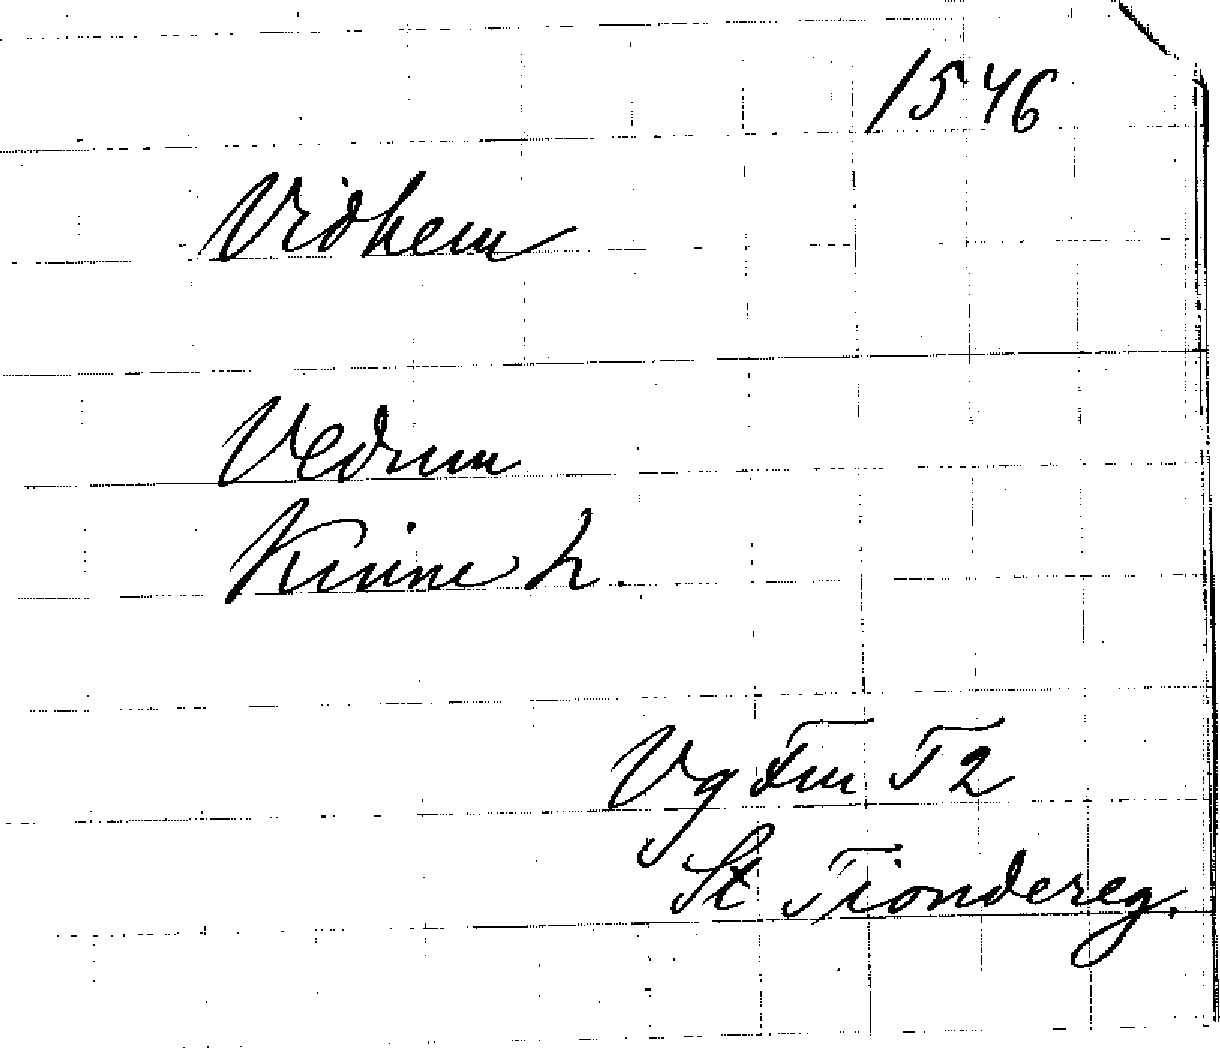 1546
Vidhem
Vedum
Kinne h.
Vg Fm T2
St Tiondereg.